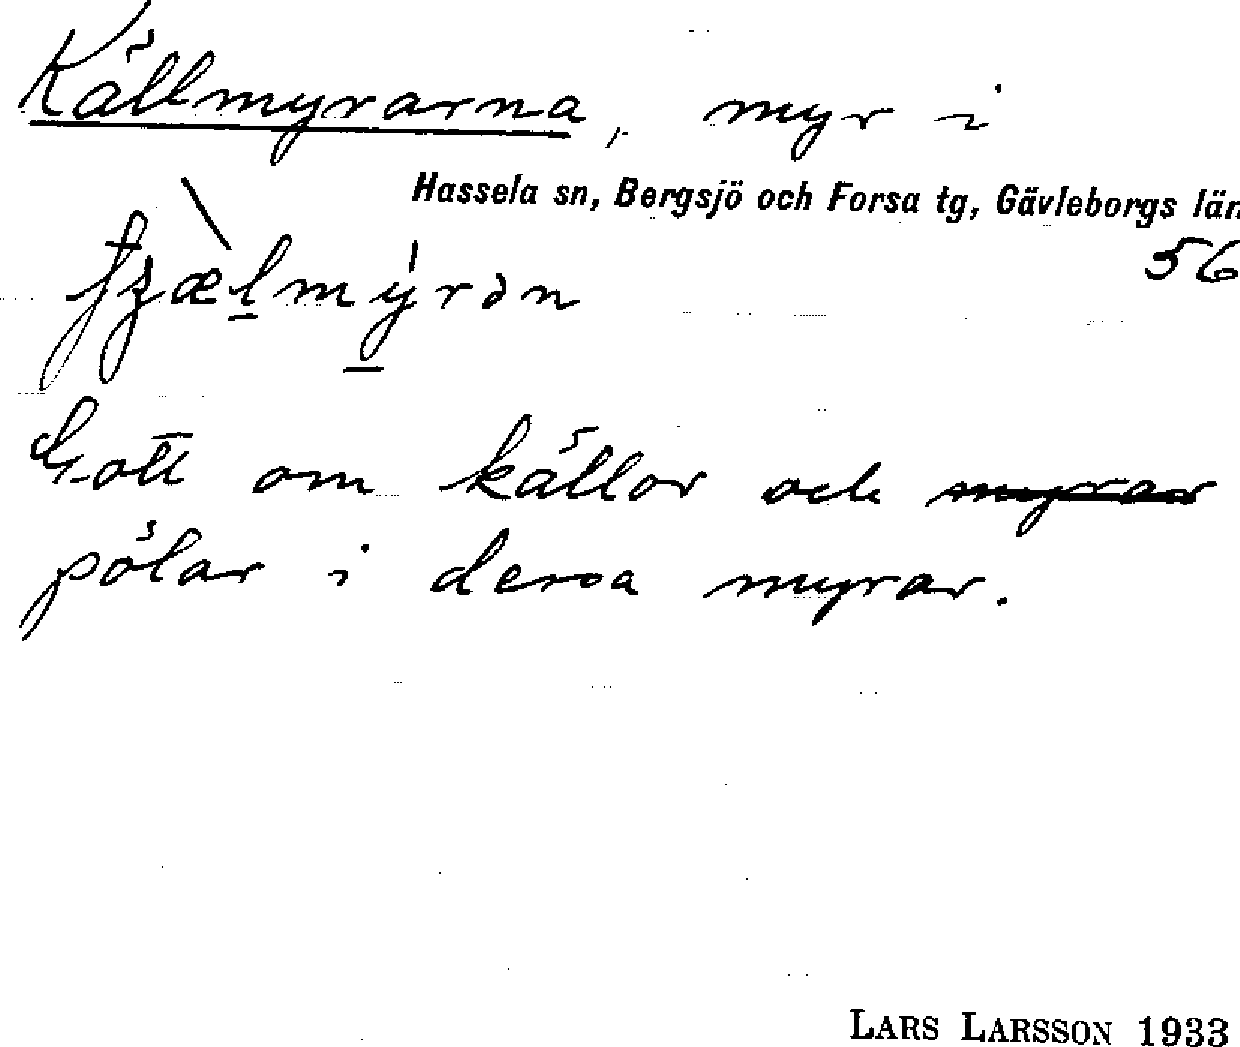 Källmyrarna, myr i
Hassela sn, Bergsjö och Forsa tg, Gävleborgs län
56
Gott om källor och myrar
pölar i dessa myrar.
LARS LARSSON 1933